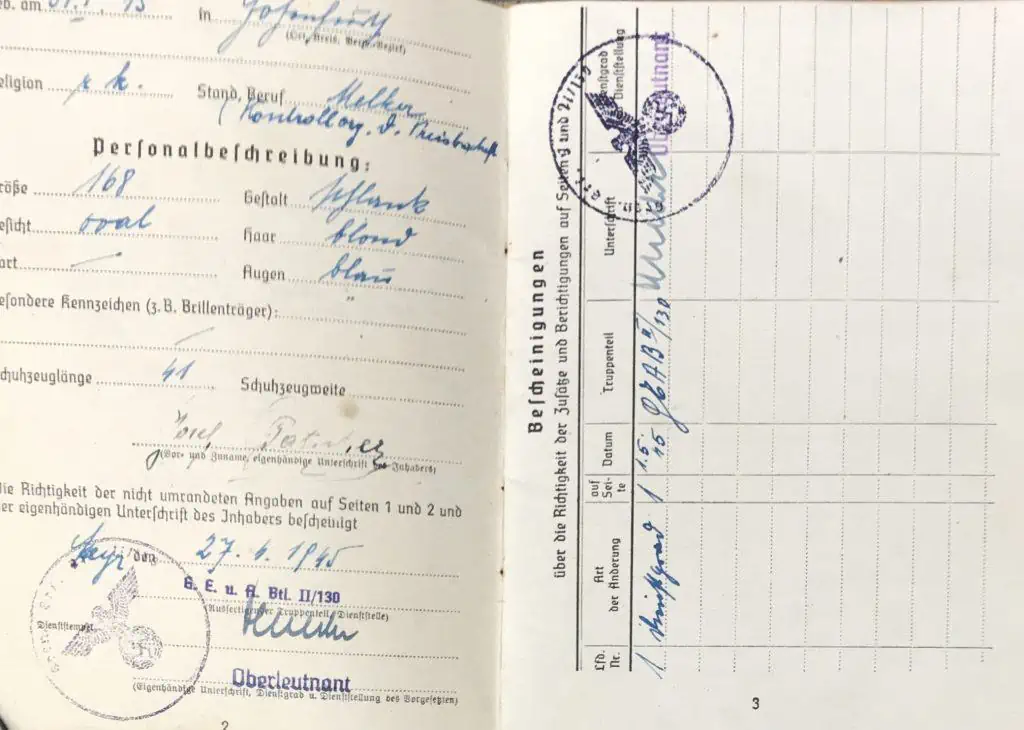 eb. am in
(Ort, Kreis, Verw.-Bezirk)
eligion r. k. Stand, Beruf Melker
(Kontrollorg. d.
Personalbeschreibung:
röße 168 Gestalt schlank
esicht oval Haar blond
art — Augen blau
esondere Kennzeichen (z. B. Brillenträger):
—
chuhzeuglänge 41 Schuhzeugweite
Josef
(Vor- und Zuname, eigenhändige Unterschrift des Inhabers)
ie Richtigkeit der nicht umrandeten Angaben auf Seiten 1 und 2 und
er eigenhändigen Unterschrift des Inhabers bescheinigt
den 27. 4. 1945
G. E. u. A. Btl. II/130
(Ausfertigender Truppenteil, Dienststelle)
Dienststempel
Oberleutnant
(Eigenhändige Unterschrift, Dienstgrad u. Dienststellung des Vorgesetzten)
2
Bescheinigungen
über die Richtigkeit der Zusätze und Berichtigungen auf Seiten 1 und 2
Lfd. Nr. Art der Änderung auf Seite Datum Truppenteil Unterschrift Dienstgrad Dienststellung
1 1 1.5. 45 GEAB II/130 Oberleutnant
3